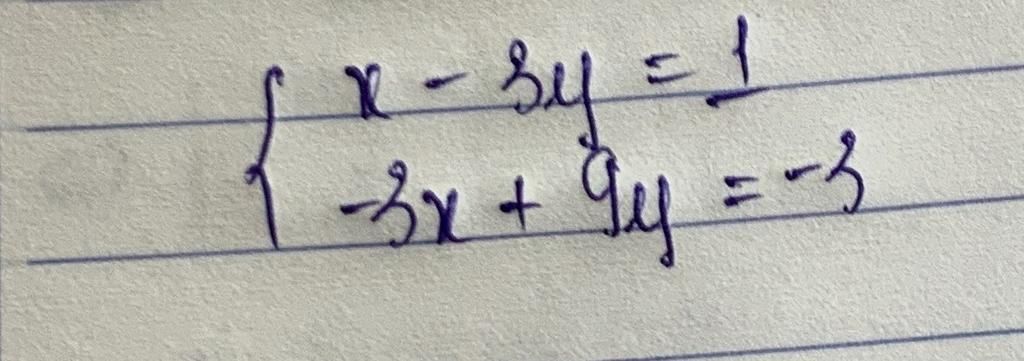 x - 3y = 1
-3x + 9y = -3